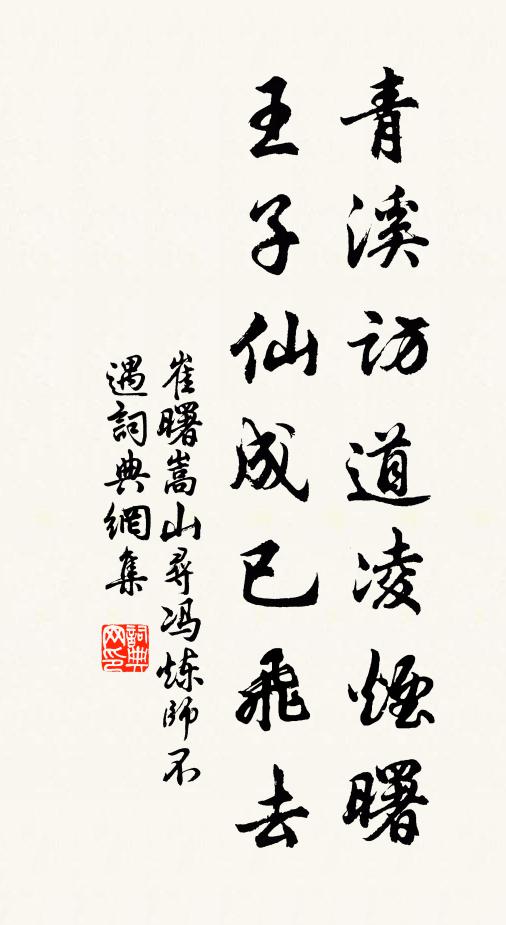 青溪訪道凌煙曙
王子仙成已飛去
崔曙嵩山尋冯炼師不
遇詞典網集
詞典
网印